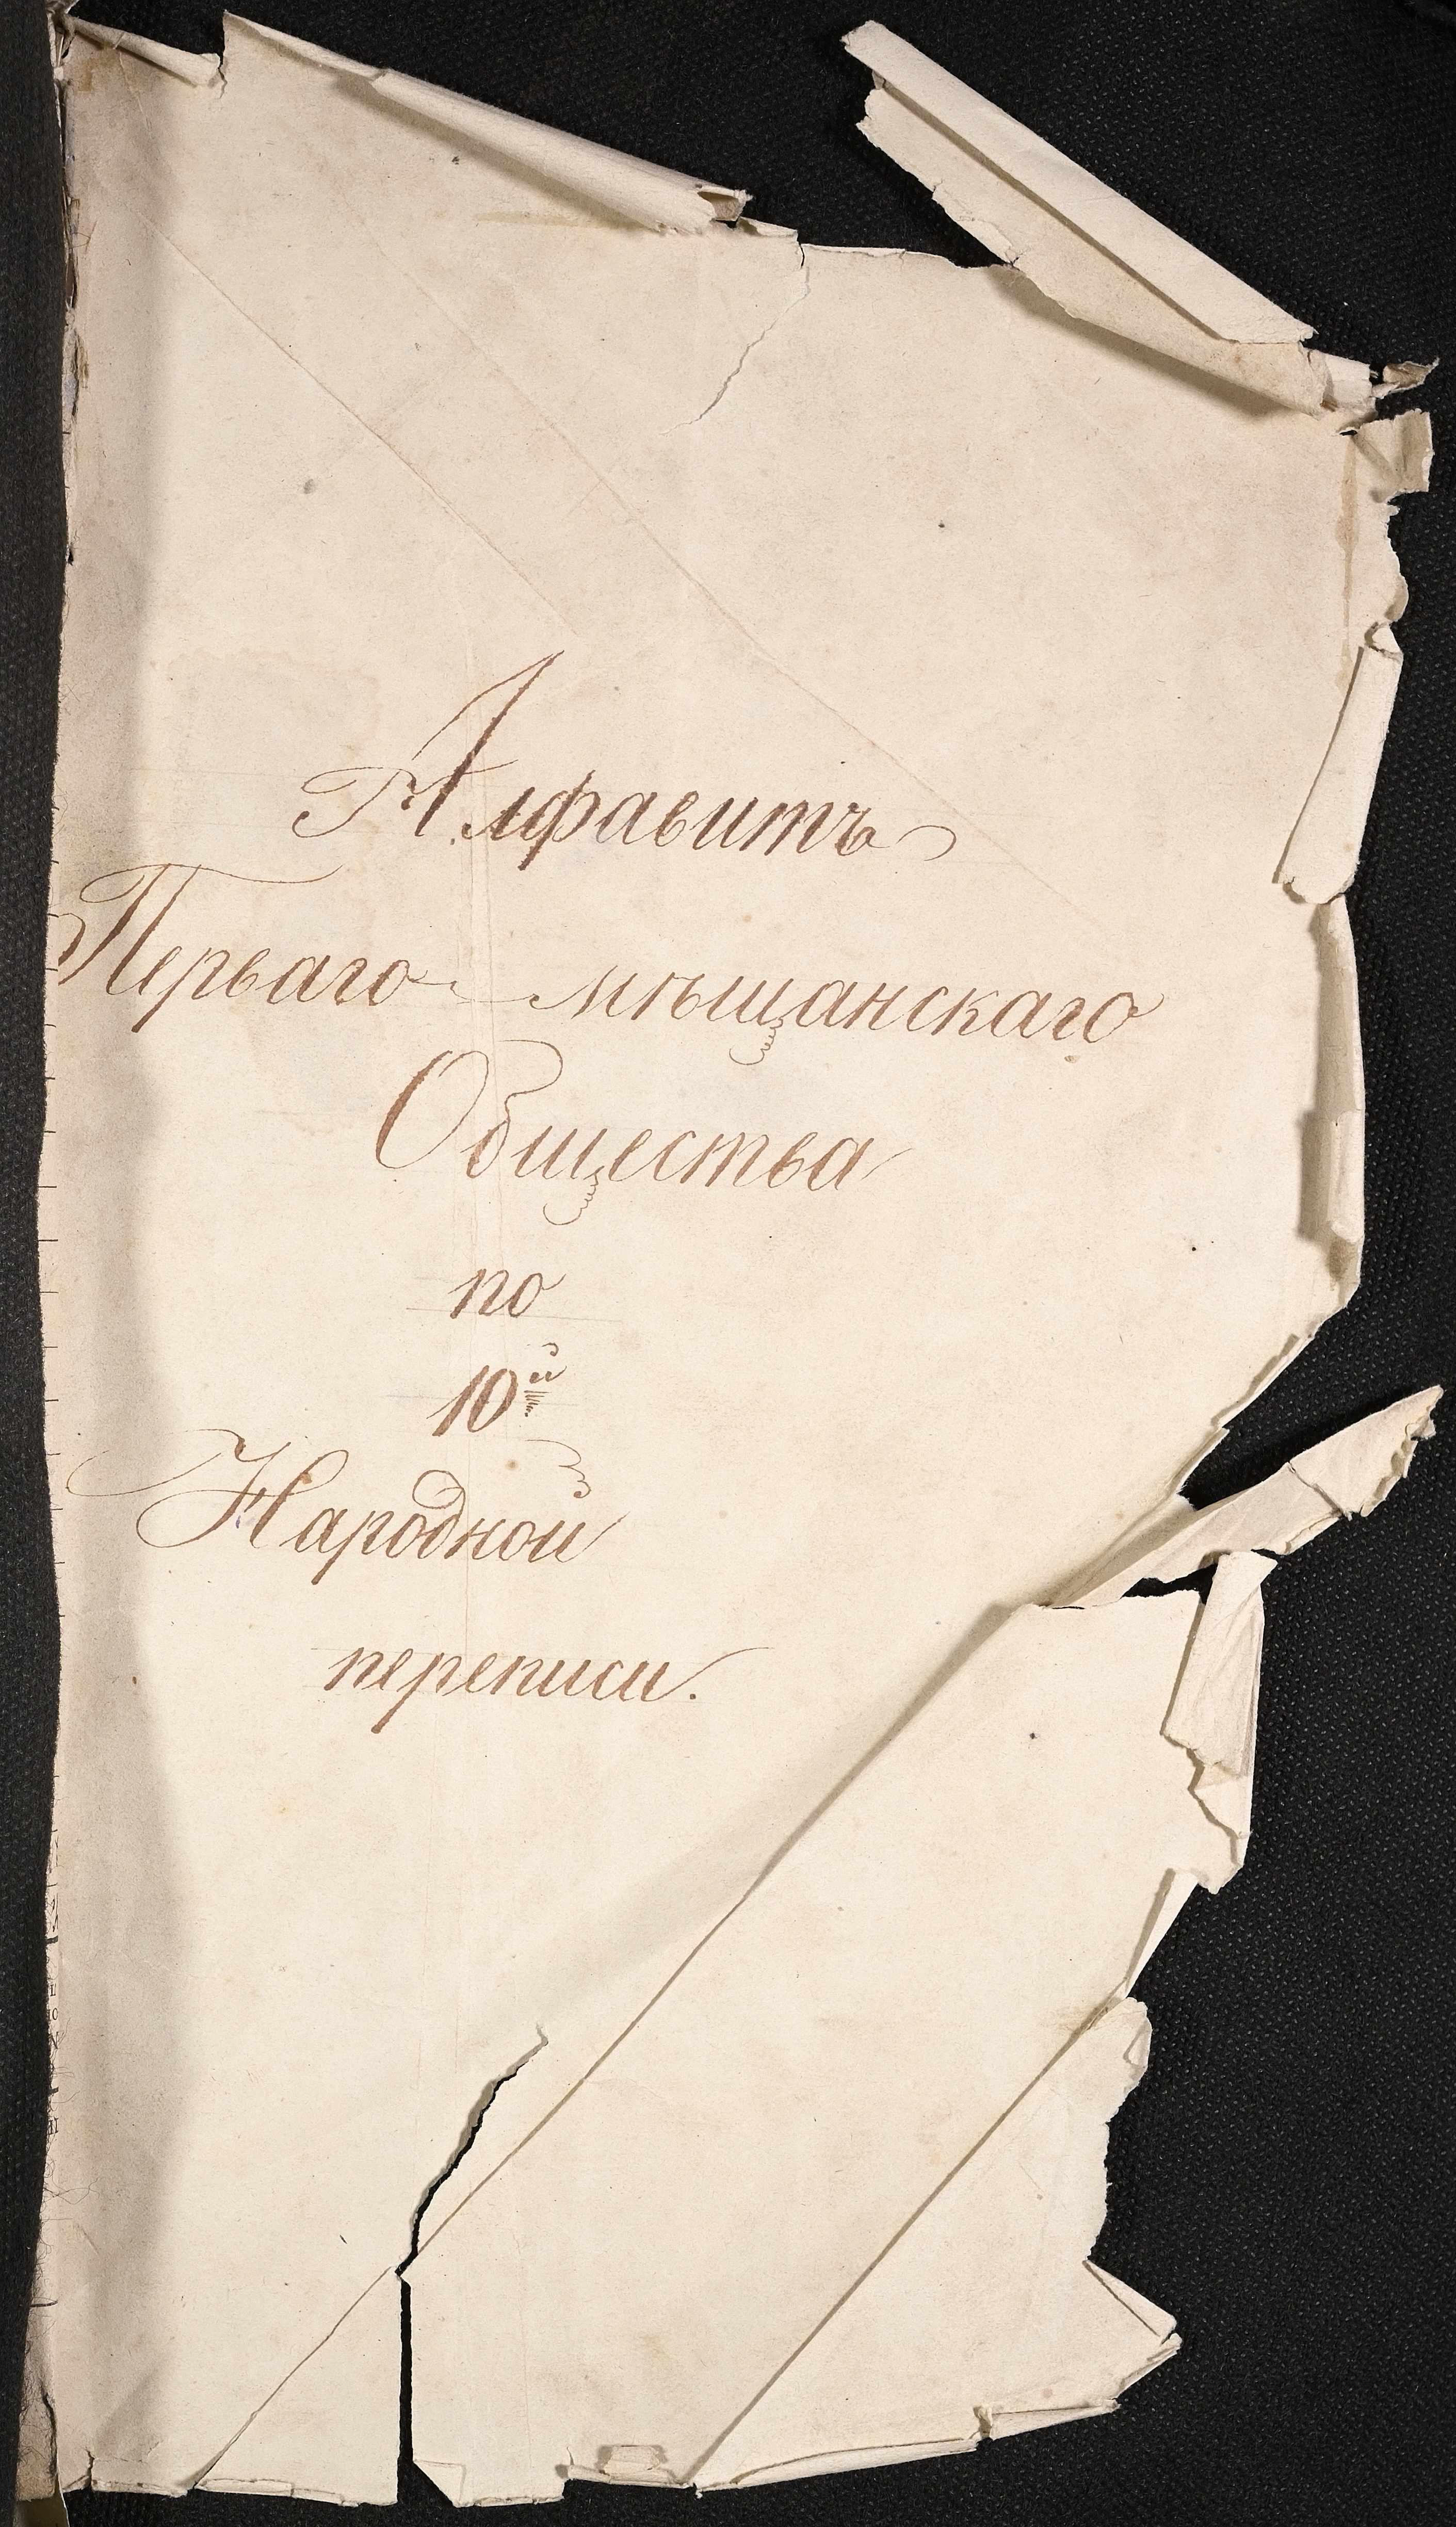 Алфавитъ
Перваго мѣщанскаго
Общества
по
10й
Народной
переписи.